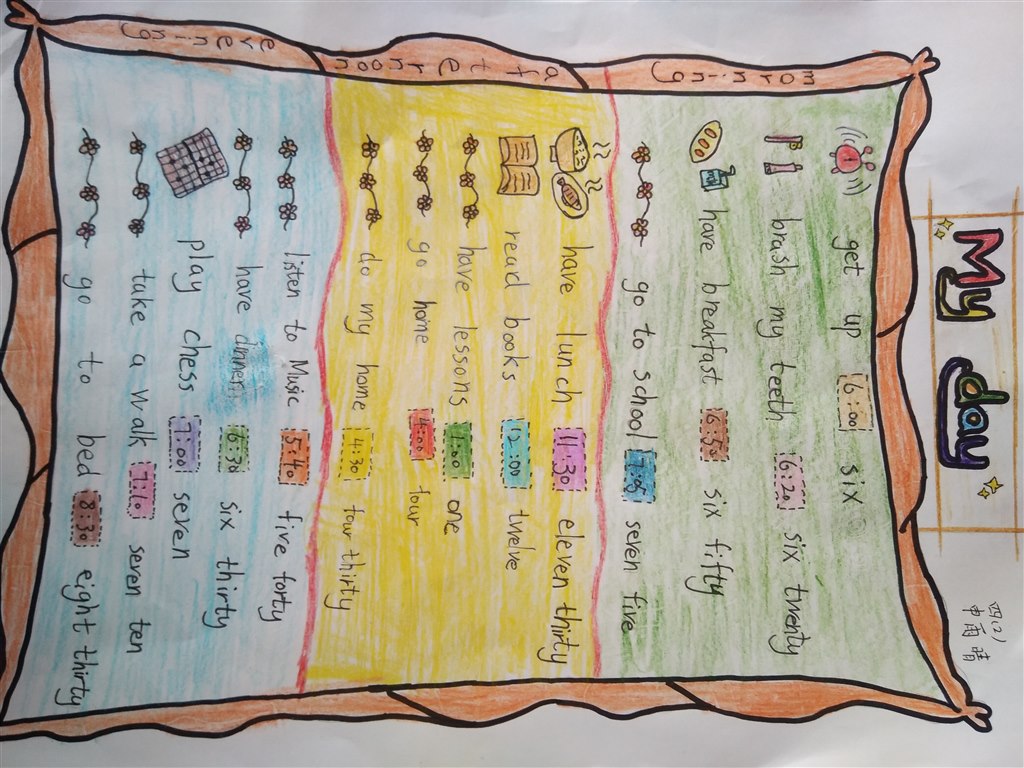 My day
四(2)
申雨晴
morning
get up 6:00 six
brash my teeth 6:20 six twenty
have breakfast 6:50 six fifty
go to school 7:05 seven five
afternoon
have lunch 11:30 eleven thirty
read books 12:00 twelve
have lessons 1:00 one
go home 4:00 four
do my home 4:30 four thirty
evening
listen to Music 5:40 five forty
have dinner 6:30 six thirty
play chess 7:00 seven
take a walk 7:10 seven ten
go to bed 8:30 eight thirty